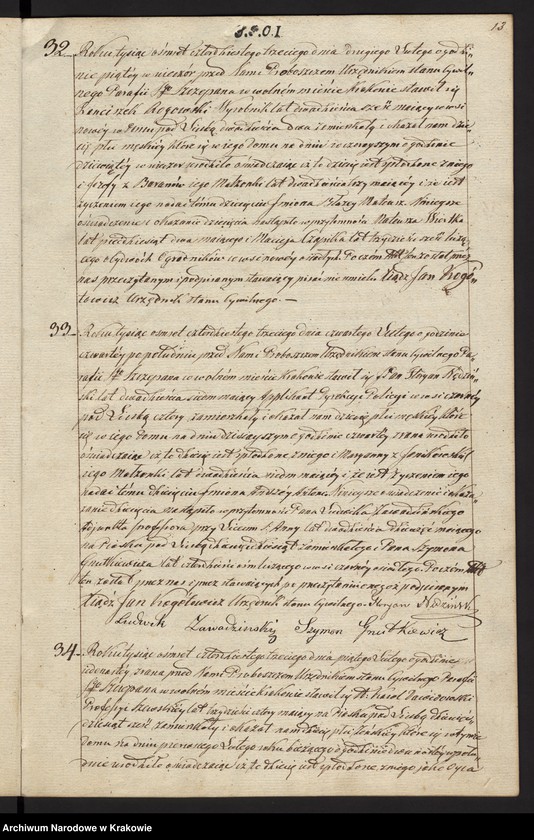 S.P.O.I
13
32 Roku tysiąc ośmset czterdziestego trzeciego dnia drugiego Lutego o godzi-
nie piątéj w wieczór przed Nami Proboszczem Urzędnikiem stanu Cywil-
nego Parafii Sgo Szczepana w wolném mieście Krakowie stawił się
Franciszek Rogowski Wyrobnik lat dwadzieścia sześć mający w wsi
Nowéj w domu pod Liczbą dwadzieścia dwa zamieszkały i okazał nam dzie-
cię płci męskiéj które się w jego domu na dniu wczorajszym o godzinie
dziewiątéj w wieczór urodziło oświadczając iż to dziecię jest spłodzone z niego
i Zofii z Baranów jego Małżonki lat dwadzieścia trzy mającéj i że jest
życzeniem jego nadać temu dziecięciu Imiona Błażéj Mateusz. Niniejsze
oświadczenie i okazanie dziecięcia nastąpiło w przytomności Mateusza
lat pięćdziesiąt dwa mającego i Macieja lat trzydzieści sześć liczą-
cego obydwóch Ogrodników w wsi Nowéj osiadłych. Poczém Akt ten został przez
nas przeczytanym i podpisanym stawający pisać nie umieli. Xiądz Jan
Urzędnik stanu Cywilnego.
33 Roku tysiąc ośmset czterdziestego trzeciego dnia czwartego Lutego o godzinie
czwartéj po południu przed Nami Proboszczem Urzędnikiem stanu Cywilnego Pa-
rafii Sgo Szczepana w wolném mieście Krakowie stawił się Pan Floryan
lat dwadzieścia siedm mający Applikant Dyrekcyi Policyi w wsi czarnéj
pod Liczbą cztery zamieszkały i okazał nam dziecię płci męskiéj które
się w jego domu na dniu dzisiejszym o godzinie czwartéj zrana urodziło
oświadczając iż to dziecię jest spłodzone z niego i Maryanny z
jego Małżonki lat dwadzieścia siedm mającéj i że jest życzeniem jego
nadać temu dziecięciu Imiona Andrzéj Antoni. Niniejsze oświadczenie i oka-
zanie dziecięcia nastąpiło w przytomności Pana Ludwika Zawadzińskiego
Professora przy Liceum S. Anny lat dwadzieścia dziewięć mającego
na Piasku pod Liczbą zamieszkałego i Pana Szymona
Gnutkiewicza lat czterdzieści liczącego w wsi czarnéj osiadłego. Poczém Akt
ten został przez nas i przez stawających po przeczytaniu onegoż podpisanym
Xiądz Jan Urzędnik stanu Cywilnego. Floryan
Ludwik Zawadziński Szymon Gnutkiewicz
34 Roku tysiąc ośmset czterdziestego trzeciego dnia piątego Lutego o godzinie
jedenastéj zrana przed Nami Proboszczem Urzędnikiem stanu Cywilnego Parafii
Sgo Szczepana w wolném mieście Krakowie stawił się St. Karol
Professyi Szewskiéj lat trzydzieści cztery mający na Piasku pod Liczbą dziewięć-
dziesiąt sześć zamieszkały i okazał nam dziecię płci żeńskiéj które się w tymże
domu na dniu pierwszego Lutego roku bieżącego o godzinie dwunastéj w połu-
dnie urodziło oświadczając iż to dziecię jest spłodzone z niego jako Ojca
Archiwum Narodowe w Krakowie